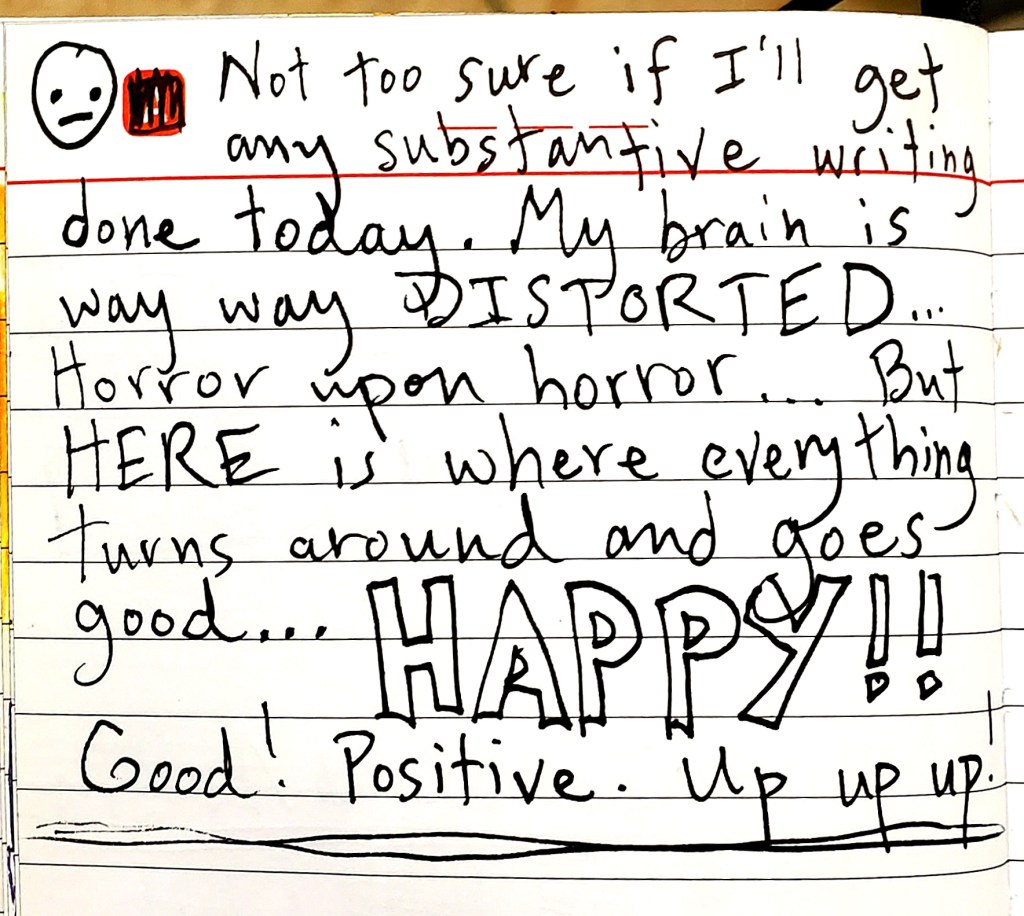 Not too sure if I'll get
any substantive writing
done today. My brain is
way way DISTORTED...
Horror upon horror... But
HERE is where everything
turns around and goes
good... HAPPY!!
Good! Positive. Up up up!